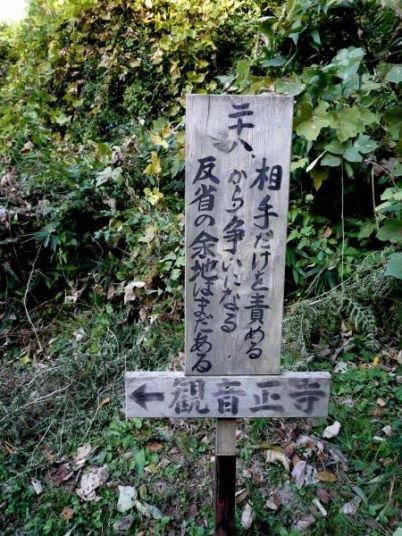 二十八
相手だけを責める
から争いになる
反省の余地はまだある
←観音正寺